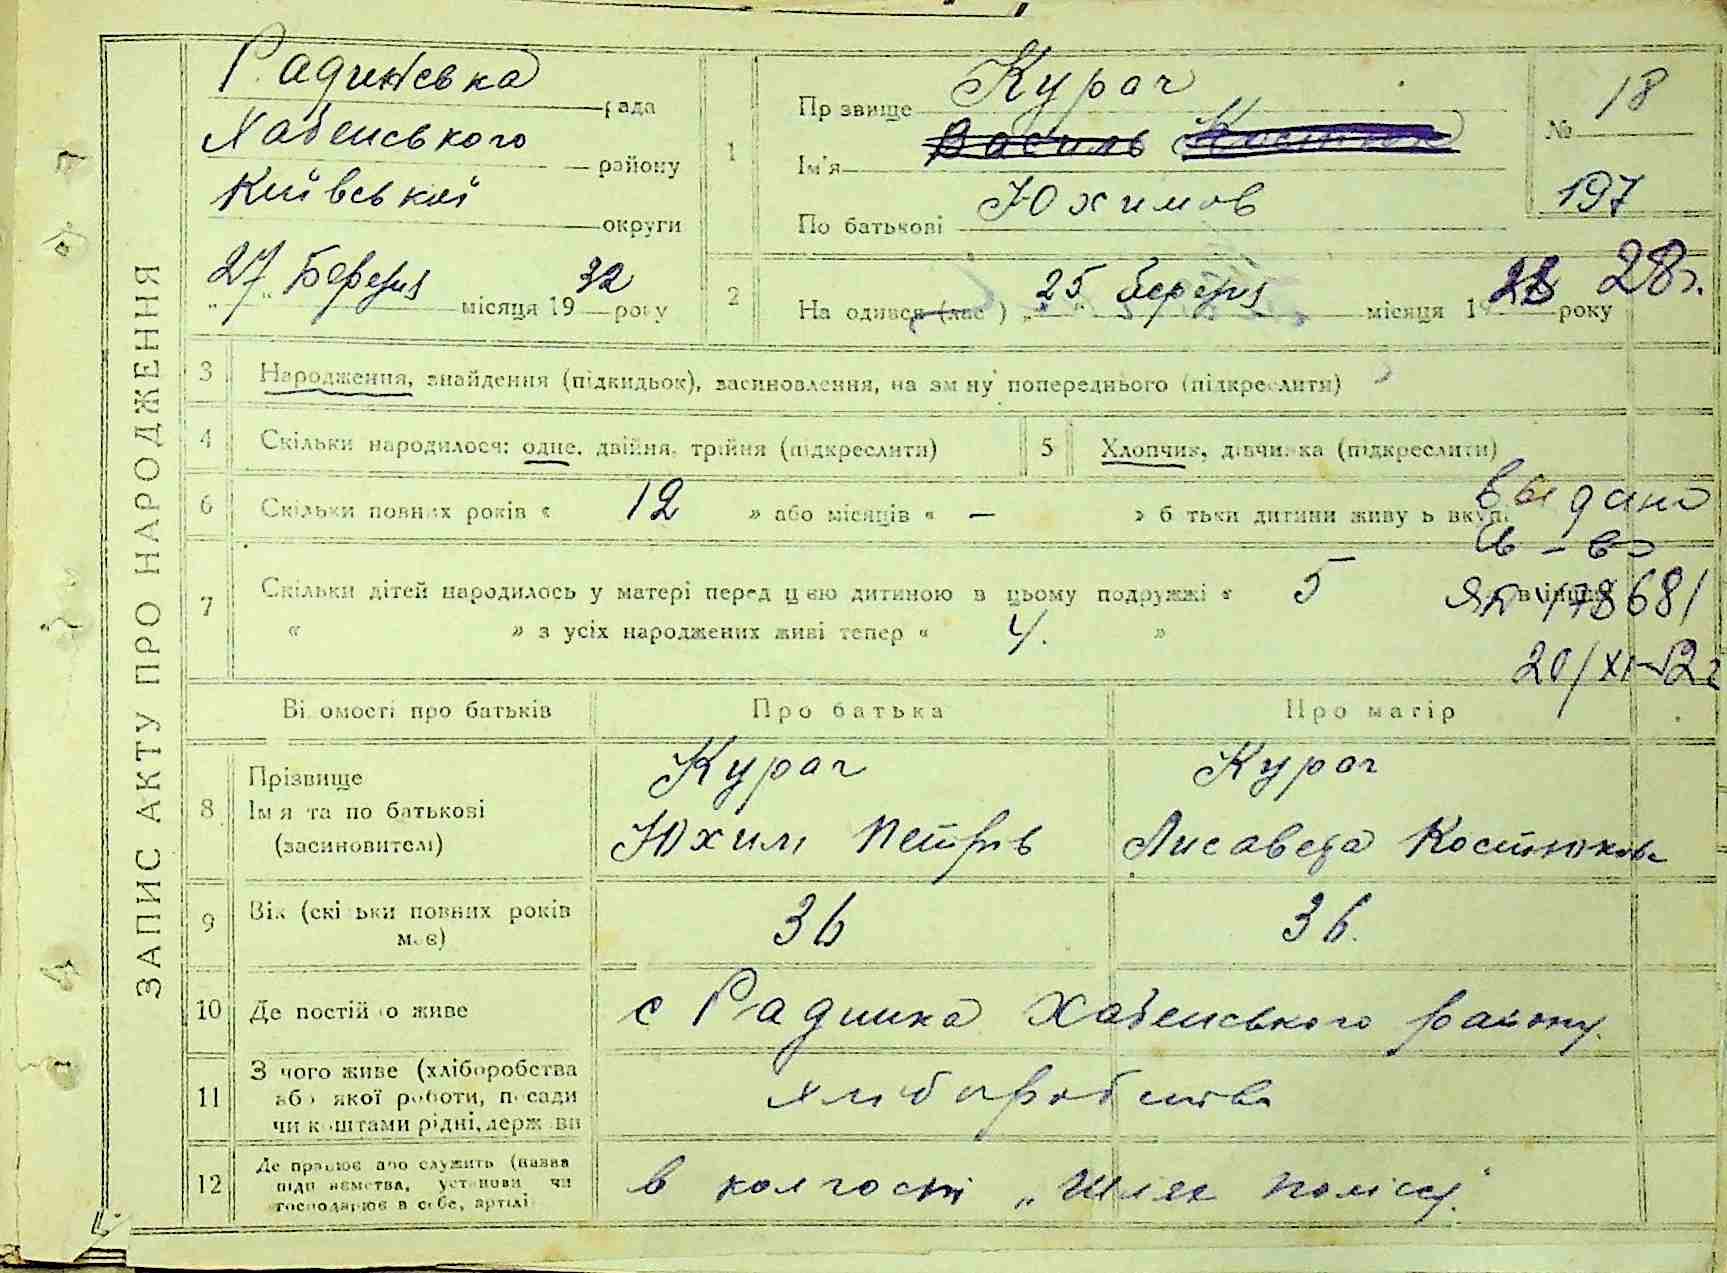 ЗАПИС АКТУ ПРО НАРОДЖЕННЯ
Радинська рада
Хабенського району
Київської округи
27 Березня місяця 1932 року
1
Прзвище Курач
Ім'я Василь
По батькові Юхимов
№ 18
197
2
На одився (лас) 25 березня місяця 1 року 28 г.
3 Народження, знайдення (підкидьок), засиновлення, на зм ну попереднього (підкреслити)
4 Скільки народилося: одне, двійня, трійня (підкреслити)
5 Хлопчик, дівчинка (підкреслити)
6 Скільки повних років « 12 » або місяців « — » б тьки дитини живу ь вкупі
выдано
св-во
7 Скільки дітей народилось у матері перед цією дитиною в цьому подружжі « 5
178681
« » з усіх народжених живі тепер « 4. »
20/XI-52г
Ві омості про батьків
Про батька
Про матір
8 Прізвище
Ім я та по батькові
(засиновителі)
Курач
Юхим Петрів
Курач
Лисавета Костюкова
9 Вік (скі ьки повних років
має)
36
36.
10 Де постій о живе
с Радинка Хабенського району.
11 З чого живе (хліборобства
або якої роботи, посади
чи коштами рідні, держ ви
хліборобства
12 Де працює або служить (назва
підп иємства, установи чи
господарює в себе, артілі
в колгоспі „Шлях Полісся".